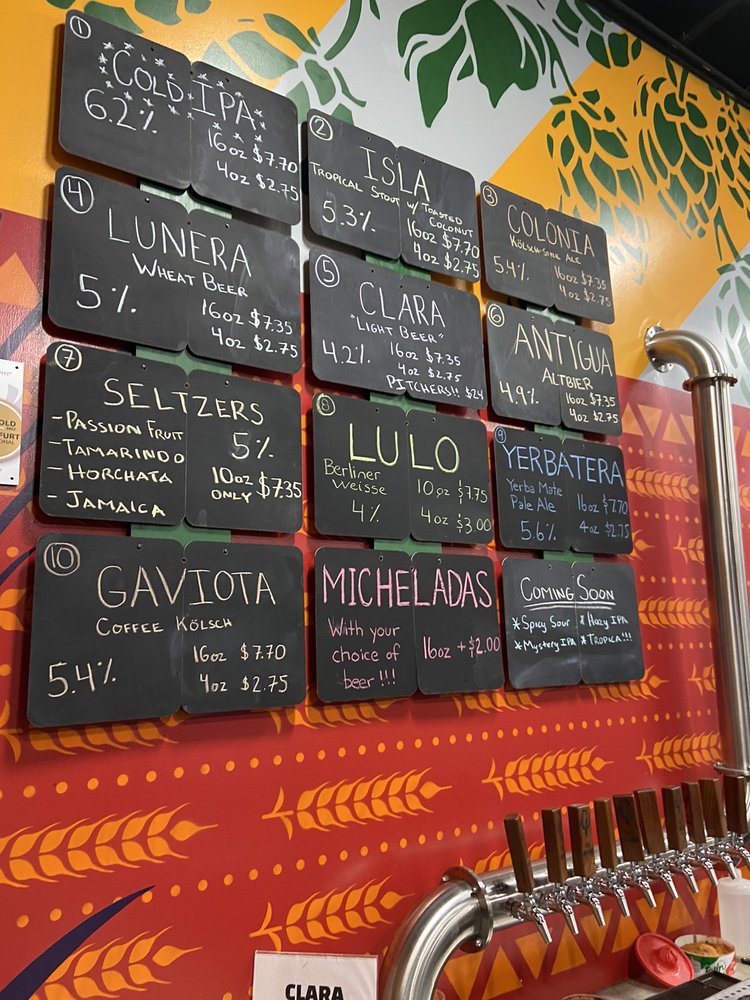 1
COLD IPA
6.2%
16oz $7.70
4oz $2.75
2
ISLA
TROPICAL STOUT W/ TOASTED
COCONUT
5.3%
16oz $7.70
4oz $2.75
3
COLONIA
KÖLSCH-STYLE ALE
5.4%
16oz $7.35
4oz $2.75
4
LUNERA
WHEAT BEER
5%
16oz $7.35
4oz $2.75
5
CLARA
"LIGHT BEER"
4.2%
16oz $7.35
4oz $2.75
PITCHERS!! $24
6
ANTIGUA
ALTBIER
4.9%
16oz $7.35
4oz $2.75
7
SELTZERS
-PASSION FRUIT
-TAMARINDO
-HORCHATA
-JAMAICA
5%
10oz $7.35
ONLY
8
LULO
Berliner
Weisse
4%
10oz $7.75
4oz $3.00
9
YERBATERA
Yerba Mate
Pale Ale
5.6%
16oz $7.70
4oz $2.75
10
GAVIOTA
COFFEE KÖLSCH
5.4%
16oz $7.70
4oz $2.75
MICHELADAS
With your
choice of
beer!!!
16oz + $2.00
COMING SOON
*Spicy Sour *Hazy IPA
*Mystery IPA *TROPICA!!!
CLARA